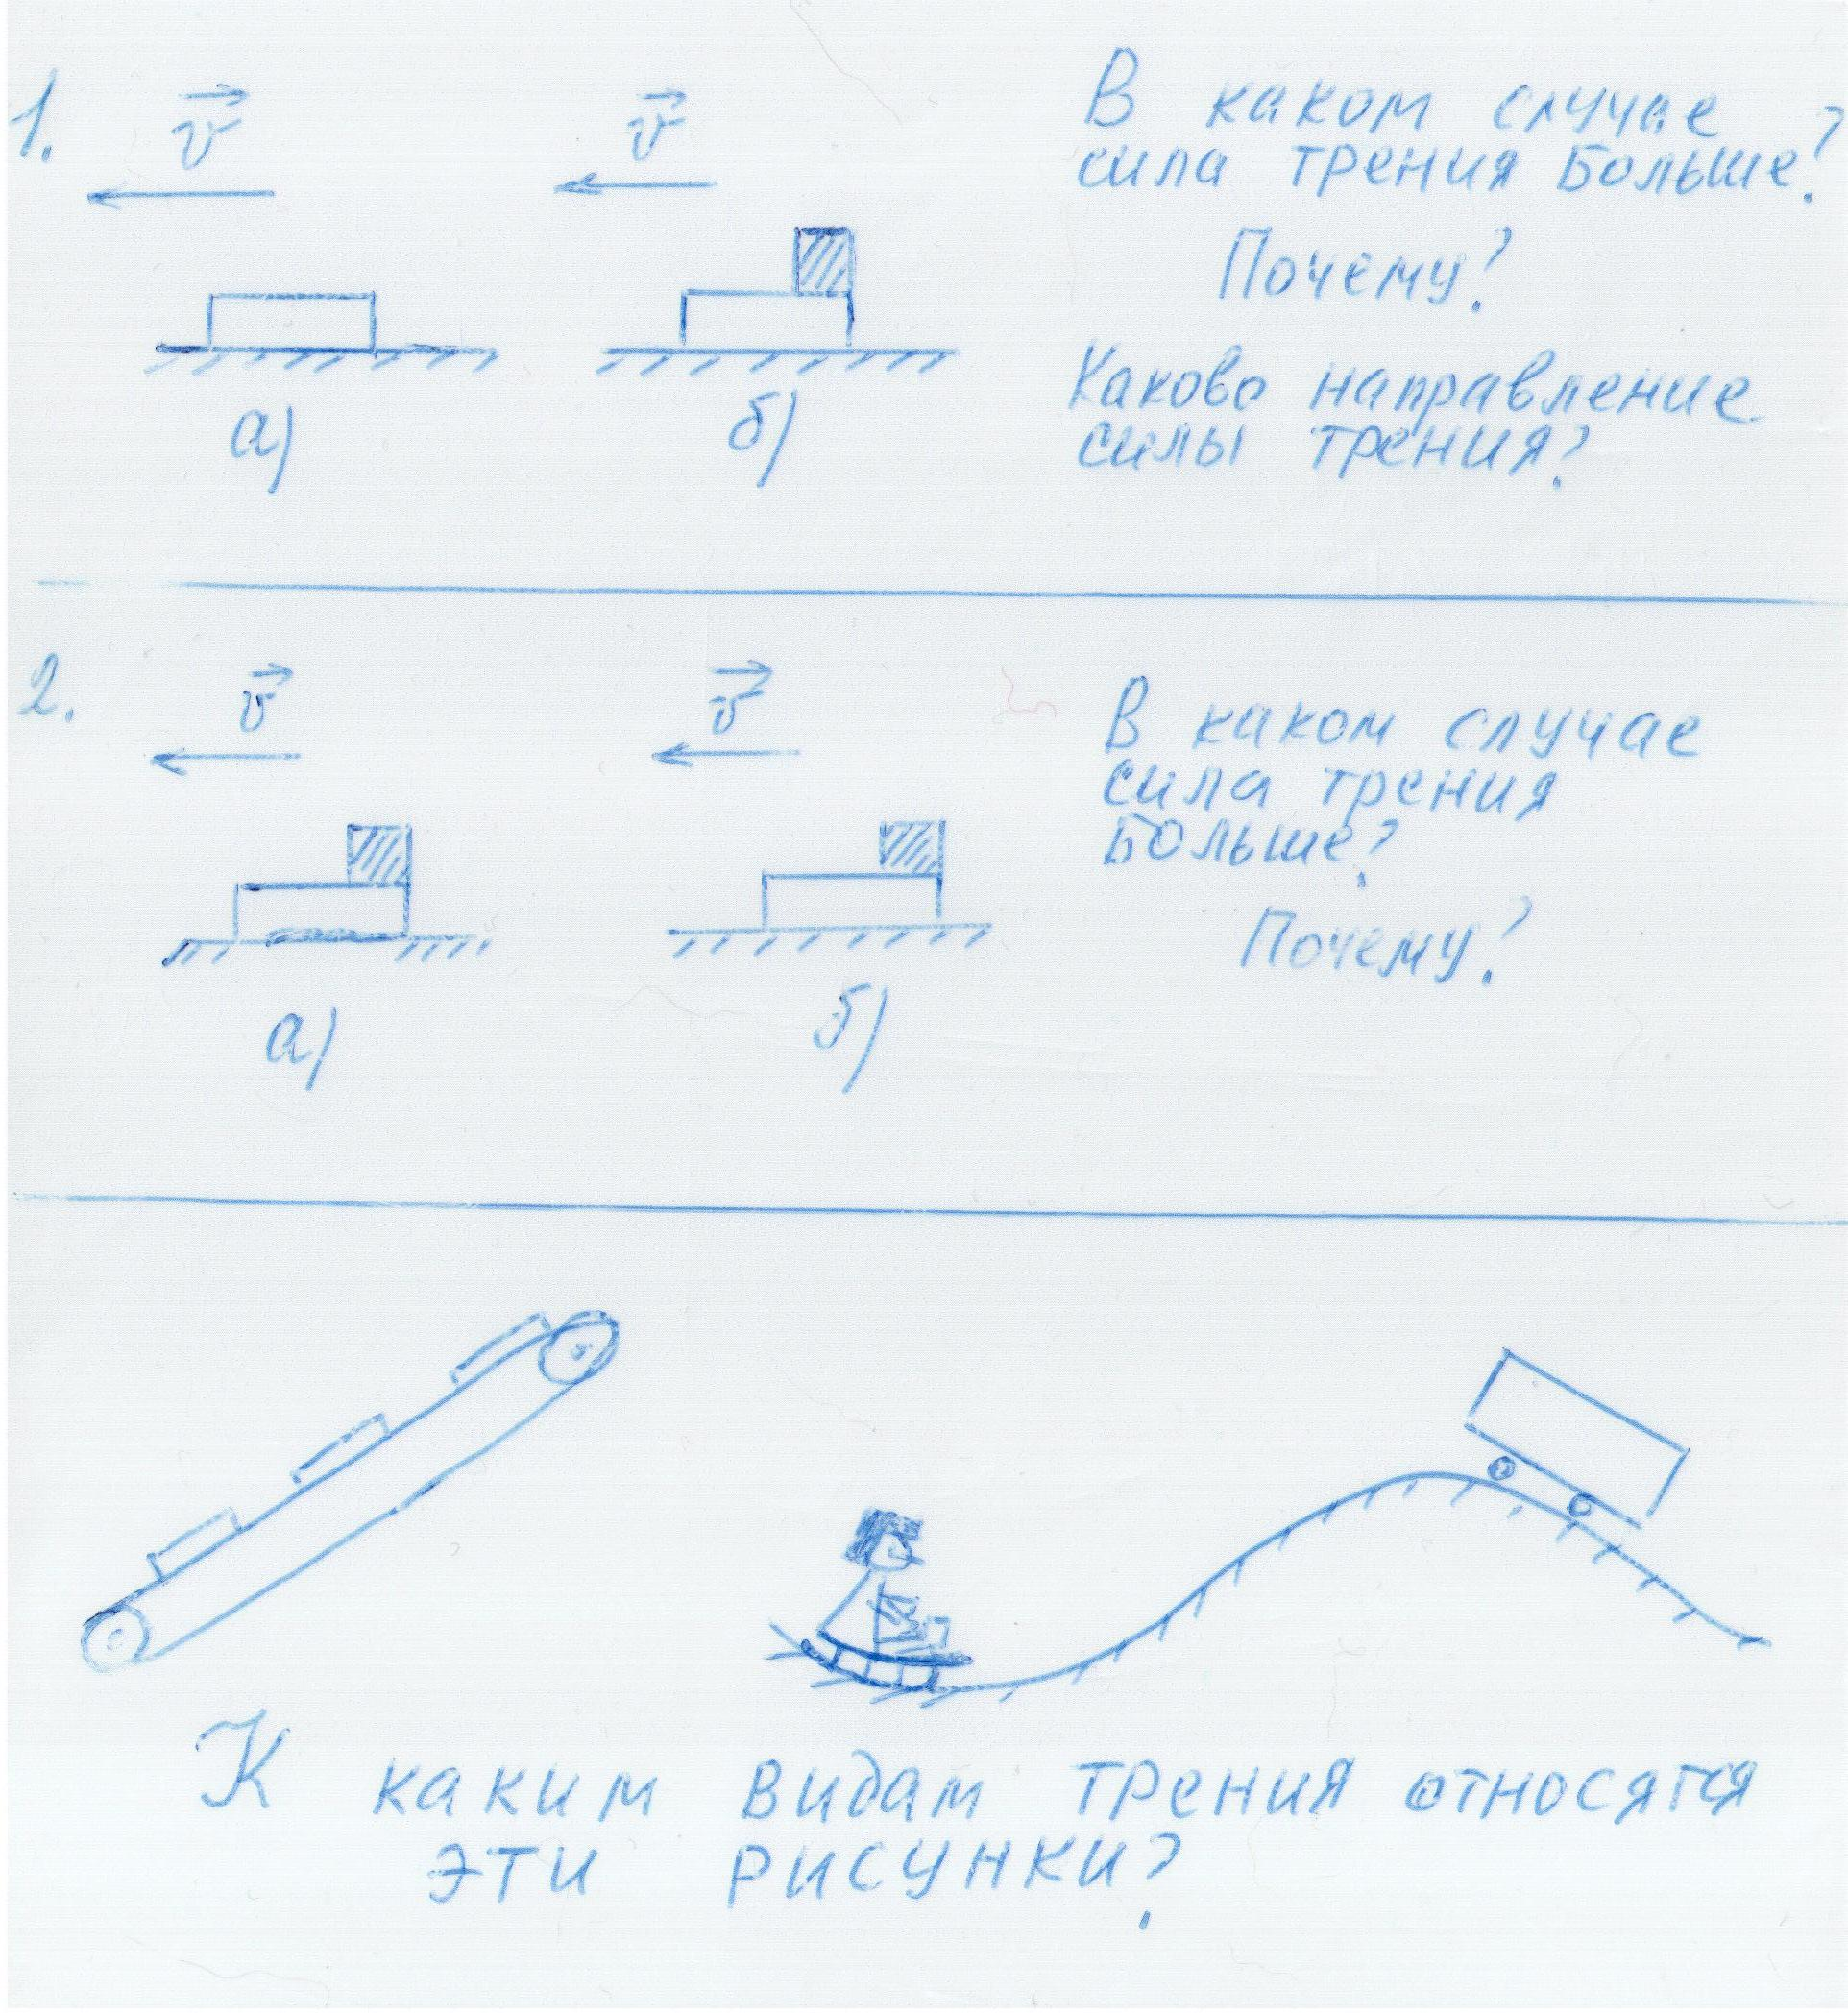 1.
v
v
В каком случае
сила трения больше?
Почему?
Каково направление
силы трения?
а)
б)
2.
v
v
В каком случае
сила трения
больше?
Почему?
а)
б)
К каким видам трения относятся
эти рисунки?